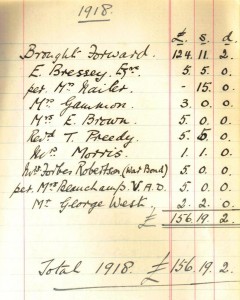 1918.
£ s. d.
Brought Forward. 124. 11. 2
E. Bressey. Esqre 5. 5. 0.
per. Mr Nailer - 15. 0.
Mrs Gammon 3. 0. 0.
Mrs E. Brown 5. 0. 0.
Revd T. Preedy. 5. 5. 0.
Mrs Morris. 1. 1. 0.
Forbes Robertson (War Bond) 5. 0. 0.
per. Mrs Beauchamp V.A.D. 5. 0. 0.
Mr George West. 2. 2. 0.
£ 156. 19. 2.
Total 1918. £156. 19. 2.